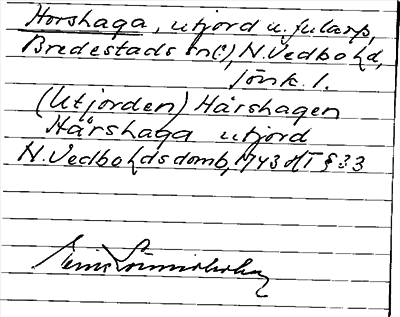 Horshaga, utjord u. Jularp,
Bredestads sn(?), N. Vedbo hd,
Jönk. l.
(Utjorden) Hårshagen
Hårshaga utjord
N. Vedbo hds domb, 1743 HT § 33